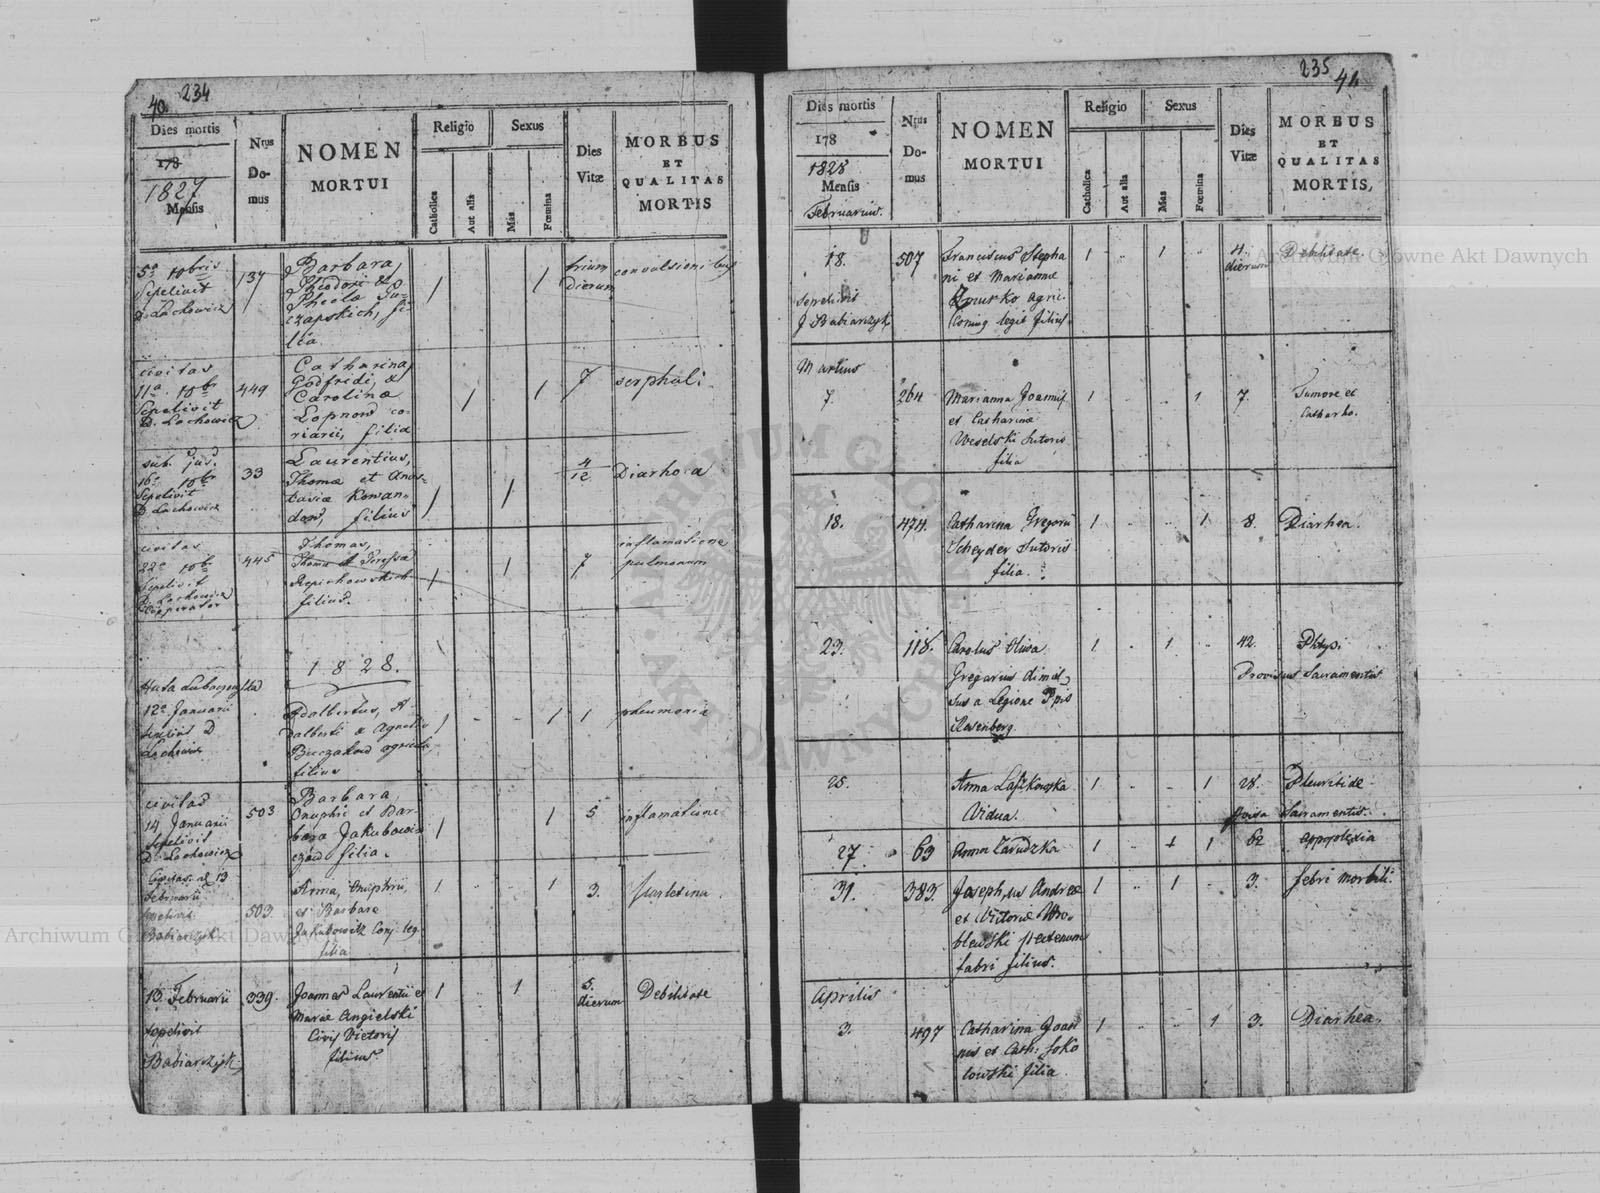 40. 234
Dies mortis
178
1827
Mensis
Nrus
Do-
mus
NOMEN
MORTUI
Religio
Catholica
Aut alia
Sexus
Mas
Fœmina
Dies
Vitæ
MORBUS
ET
QUALITAS
MORTIS
5a 10bris
Sepelivit
D. Lachowicz
137
Barbara,
Theodori et
Theclæ
czapskich, fi-
lia.
1
1
trium
dierum
convulsioni
civitas
11a 10bris
Sepelivit
D. Lachowicz
449
Catharina,
Godfredi, &
Carolinæ
Lopnow co-
riarii, filia
1
1
7
sub. jus.
16a 10bris
Sepelivit
D. Lachowicz
33
Laurentius,
Thomæ et Anas-
tasiæ Kowan-
dow, filius
1
1
4
12
Diarhoea
civitas
22a 10bris
Sepelivit
D. Lachowicz
Cooperator
445
Thomas,
Thomæ et Teressa
filius.
1
1
7
inflamatione
pulmonum
1828.
12a Januarii
sepelivit D
Adalbertus, A
dalberti & Agnetis
filius
1
1
1
pneumonia
civitas
14 Januarii
Sepelivit
D. Lachowicz
503
Barbara,
Onuphri et Bar-
bara Jakubowi
czow filia.
1
1
5
inflamatione
Civitas. d. 13
Februarii
sepelivit
Babiarczyk
503.
Anna, Onuphrii,
et Barbaræ
Jakubowitz Conj. leg.
filia
1
1
3.
13. Februarii
sepelivit
Babiarczyk
339.
Joannes Laurentii et
Mariæ Angielski
Civis Pictoris
filius
1
1
5.
dierum
Debilitate
235 41
Dies mortis
178
1828
Mensis
Februarius.
Nrus
Do-
mus
NOMEN
MORTUI
Religio
Catholica
Aut alia
Sexus
Mas
Fœmina
Dies
Vitæ
MORBUS
ET
QUALITAS
MORTIS,
18.
sepelivit
J Babiarczyk
507
Franciscus Stepha
ni et Marianna
Zmurko agri.
Conjug legit filius.
1
1
4.
dierum
Debilitate.
Martius
7.
264
Marianna Joannis
et Catharinæ
Weselski Sutoris
filia
1
1
7.
Tumore et
Catharho.
18.
474.
Catharina Gregorii
Scheyder Sutoris
filia.
1
1
8.
Diarhea.
23.
118.
Carolus Oliwa
Gregarius dimis
sus a Legione Ppis
Rosenberg.
1
1
42.
Phtysi.
Provisus Sacramentis
25.
Anna Laszkowska
Vidua.
1
1
28.
Pleuritide
Provisa Sacramentis.
27
63
Anna Zarudzka
1
1
1
62
Appoplexia
31.
383.
Josephus Andreæ
et Victoriæ Wro-
blewski pectenum
fabri filius.
1
1
3.
febri morbili.
Aprilis
3.
497
Catharina Joan
nis et Cath: Soko
lowski filia.
1
1
3.
Diarhea.
ARCHIWUM GŁÓWNE AKT DAWNYCH
Archiwum Główne Akt Dawnych
Archiwum Główne Akt Dawnych